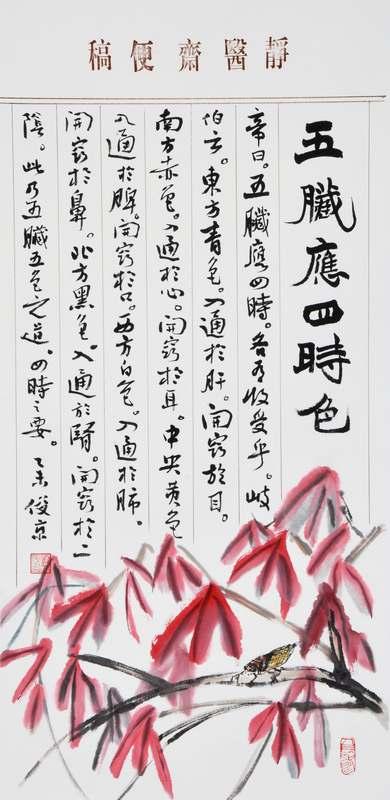 靜醫齋便稿
五臟應四時色
帝曰。五臟應四時。各有收受乎。岐
伯云。東方青色。入通於肝。開竅於目。
南方赤色。入通於心。開竅於耳。中央黃色
入通於脾。開竅於口。西方白色。入通於肺。
開竅於鼻。北方黑色。入通於腎。開竅於二
陰。此乃五臟五色之道。四時之要。乙未 俊京